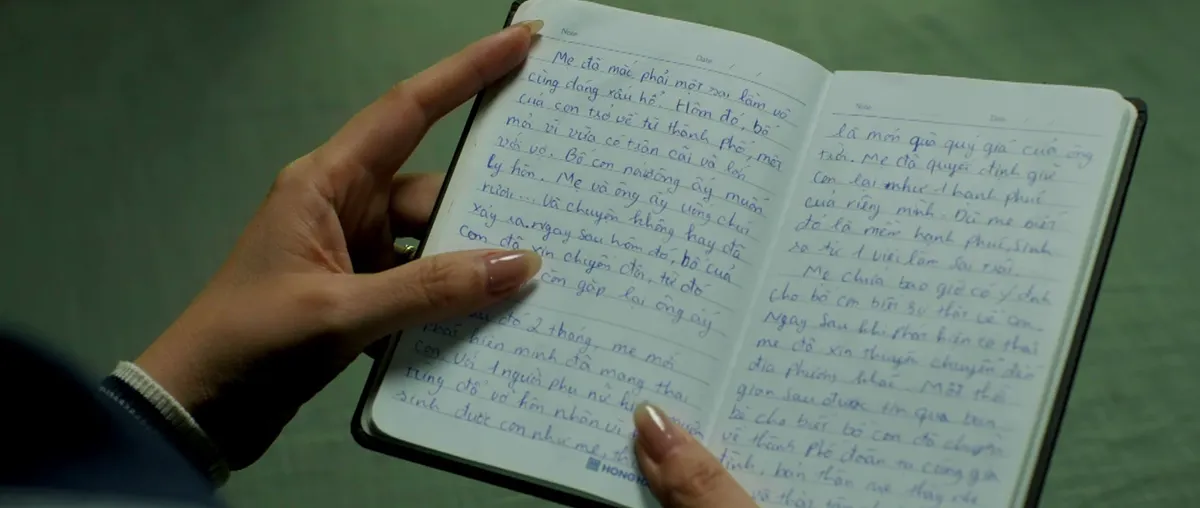 Note Date / /
Mẹ đã mắc phải một sai lầm vô
cùng đáng xấu hổ. Hôm đó, bố
của con trở về từ thành phố, mệt
mỏi vì vừa có trận cãi vã lớn
với vợ. Bố con nói ông ấy muốn
ly hôn. Mẹ và ông ấy uống chút
rượu... và chuyện không hay đã
xảy ra. ngay sau hôm đó, bố của
con đã xin chuyển đi, từ đó
còn gặp lại ông ấy
đó 2 tháng mẹ mới
phát hiện mình đã mang thai
con. Với 1 người phụ nữ
từng đổ vỡ hôn nhân vì
sinh được con như mẹ,
HONG
Note Date / /
là món quà quý giá của ông
trời. Mẹ đã quyết định giữ
con lại như 1 hạnh phúc
của riêng mình. Dù mẹ biết
đó là niềm hạnh phúc sinh
ra từ 1 việc làm sai trái
Mẹ chưa bao giờ có ý định
cho bố con biết sự thật về con.
Ngay sau khi phát hiện có thai
mẹ đã xin thuyên chuyển đến
địa phương khác. Một thời
gian sau được tin qua bạn
bè cho biết bố con đã chuyển
về thành phố đoàn tụ cùng gia
đình, bản thân mẹ thấy